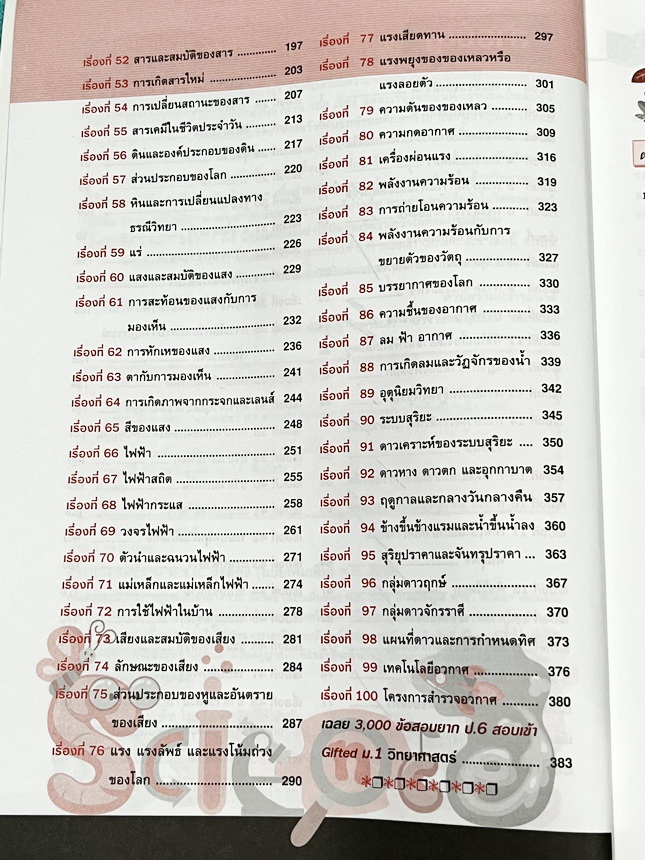 เรื่องที่ 52 สารและสมบัติของสาร ............ 197
เรื่องที่ 53 การเกิดสารใหม่ ..................... 203
เรื่องที่ 54 การเปลี่ยนสถานะของสาร ....... 207
เรื่องที่ 55 สารเคมีในชีวิตประจำวัน .......... 213
เรื่องที่ 56 ดินและองค์ประกอบของดิน ...... 217
เรื่องที่ 57 ส่วนประกอบของโลก ............... 220
เรื่องที่ 58 หินและการเปลี่ยนแปลงทาง
ธรณีวิทยา ............................ 223
เรื่องที่ 59 แร่ ...................................... 226
เรื่องที่ 60 แสงและสมบัติของแสง ............ 229
เรื่องที่ 61 การสะท้อนของแสงกับการ
มองเห็น ............................... 232
เรื่องที่ 62 การหักเหของแสง ................... 236
เรื่องที่ 63 ตากับการมองเห็น .................. 241
เรื่องที่ 64 การเกิดภาพจากกระจกและเลนส์ 244
เรื่องที่ 65 สีของแสง ............................. 248
เรื่องที่ 66 ไฟฟ้า .................................. 251
เรื่องที่ 67 ไฟฟ้าสถิต ............................ 255
เรื่องที่ 68 ไฟฟ้ากระแส ......................... 258
เรื่องที่ 69 วงจรไฟฟ้า ............................ 261
เรื่องที่ 70 ตัวนำและฉนวนไฟฟ้า .............. 271
เรื่องที่ 71 แม่เหล็กและแม่เหล็กไฟฟ้า ....... 274
เรื่องที่ 72 การใช้ไฟฟ้าในบ้าน ................ 278
เรื่องที่ 73 เสียงและสมบัติของเสียง .......... 281
เรื่องที่ 74 ลักษณะของเสียง .................... 284
เรื่องที่ 75 ส่วนประกอบของหูและอันตราย
ของเสียง .............................. 287
เรื่องที่ 76 แรง แรงลัพธ์ และแรงโน้มถ่วง
ของโลก ............................... 290
เรื่องที่ 77 แรงเสียดทาน ........................ 297
เรื่องที่ 78 แรงพยุงของของเหลวหรือ
แรงลอยตัว ........................... 301
เรื่องที่ 79 ความดันของของเหลว ............ 305
เรื่องที่ 80 ความกดอากาศ ..................... 309
เรื่องที่ 81 เครื่องผ่อนแรง ...................... 316
เรื่องที่ 82 พลังงานความร้อน ................. 319
เรื่องที่ 83 การถ่ายโอนความร้อน ............ 323
เรื่องที่ 84 พลังงานความร้อนกับการ
ขยายตัวของวัตถุ .................. 327
เรื่องที่ 85 บรรยากาศของโลก ................ 330
เรื่องที่ 86 ความชื้นของอากาศ ............... 333
เรื่องที่ 87 ลม ฟ้า อากาศ ..................... 336
เรื่องที่ 88 การเกิดลมและวัฏจักรของน้ำ 339
เรื่องที่ 89 อุตุนิยมวิทยา ....................... 342
เรื่องที่ 90 ระบบสุริยะ .......................... 345
เรื่องที่ 91 ดาวเคราะห์ของระบบสุริยะ .... 350
เรื่องที่ 92 ดาวหาง ดาวตก และอุกกาบาต 354
เรื่องที่ 93 ฤดูกาลและกลางวันกลางคืน 357
เรื่องที่ 94 ข้างขึ้นข้างแรมและน้ำขึ้นน้ำลง 360
เรื่องที่ 95 สุริยุปราคาและจันทรุปราคา ... 363
เรื่องที่ 96 กลุ่มดาวฤกษ์ ....................... 367
เรื่องที่ 97 กลุ่มดาวจักรราศี ................... 370
เรื่องที่ 98 แผนที่ดาวและการกำหนดทิศ 373
เรื่องที่ 99 เทคโนโลยีอวกาศ .................. 376
เรื่องที่ 100 โครงการสำรวจอวกาศ ........... 380
เฉลย 3,000 ข้อสอบยาก ป.6 สอบเข้า
Gifted ม.1 วิทยาศาสตร์ ...................... 383